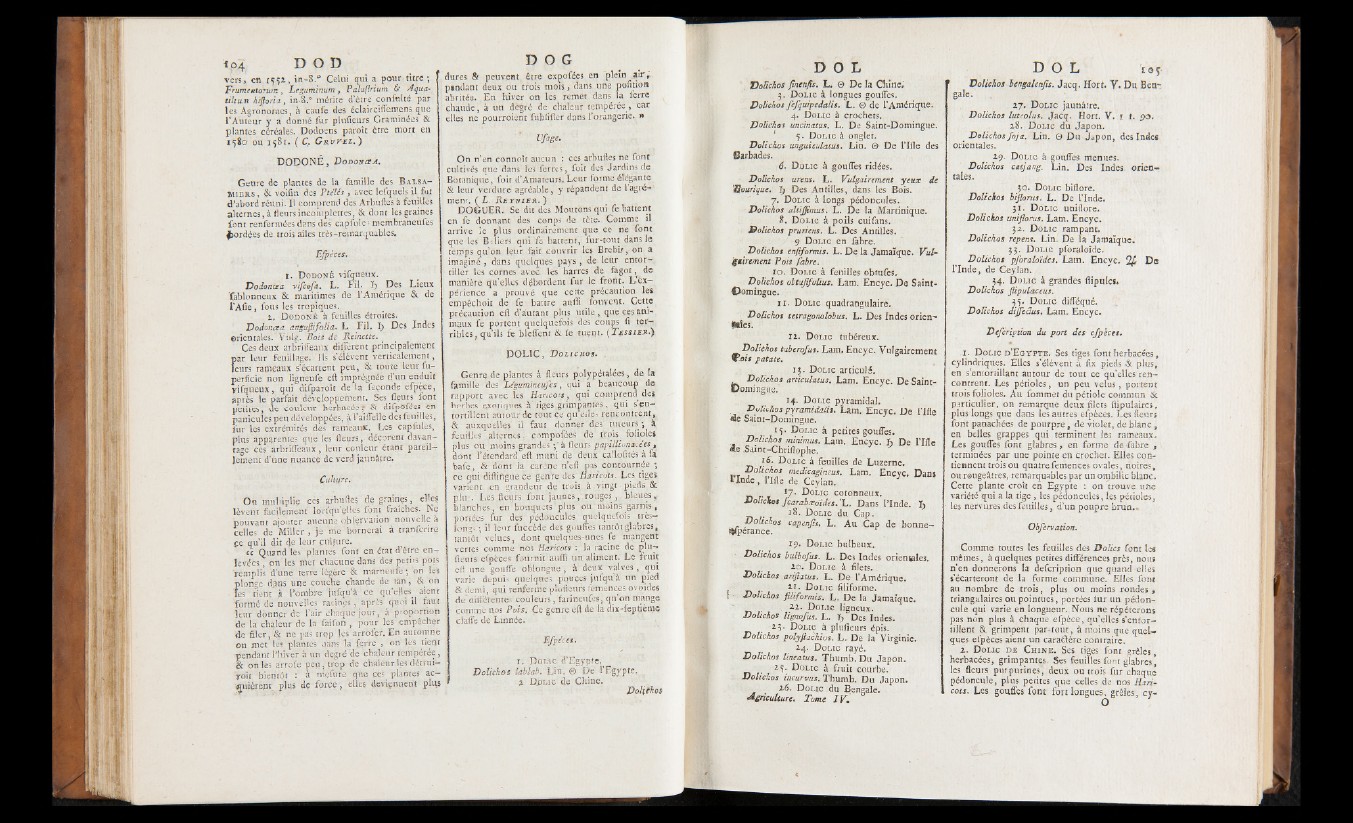 104 DOD
vers, en 1552, in-8.° Celui qui a pour titre ;
Frumentorum, Leguminum, Palustrium & Aqua-
tilium historia, in-8.° mérite d'être consulté par
les Agronomes, à cause des éclaircissemens que
l'Auteur y a donné sur plusieurs Graminées &
plantes céréales. Dodoens paroît être mort en
1580 ou 1581. (C. GRUVEL.)
DODONÉ, DODONÆA.
Genre de plantes de la famille des BALSA-
MIERS, & voisin des Ptélés, avec lesquels il fut
d'abord réuni. Il comprend des Arbustes à feuilles
alternes, à fleurs incomplettes, & dont les graines
sont renfermées dans des capsules membraneuses
bordées de trois ailes très-remarquables.
Espèces.
1. DODONÉ visqueux.
Dodonæa viscosa. L. Fil. ♄ Des Lieux
sablonneux & maritimes de l'Amérique & de
l'Asie, sous les tropiques.
2. DODONÉ à feuilles étroites.
Dodonæa angustifolia. L. Fil. ♄ Des Indes
orientales. Vulg. Bois de Reinette.
Ces deux arbrisseaux diffèrent principalement
par leur feuillage. Ils s'élèvent verticalement,
leurs rameaux s'écartent peu, & toute leur su-
perficie non ligneuse est imprégnée d'un enduit
visqueux, qui disparoît de la seconde espèce,
après le parfait développement. Ses fleurs sont
petites, de couleur herbacée, & disposées en
panicules peu développées, à l'aisselle des feuilles,
sur les extrémités des rameaux. Les capsules,
plus apparentes que les fleurs, décorent davan-
tage ces arbrisseaux, leur couleur étant pareil-
lement d'une nuance de verd jaunâtre.
Culture.
On multiplie ces arbustes de graines, elles
lèvent facilement lorsqu'elles sont fraîches. Ne
pouvant ajouter aucune observation nouvelle à
celles de Miller, je me bornerai à transcrire
ce qu'il dit de leur culture.
« Quand les plantes sont en état d'être en-
levées, on les met chacune dans des petits pots
remplis d'une terre légère & marneuse ; on les
plonge dans une couche chaude de tan, & on
les tient à l'ombre jusqu'à ce qu'elles aient
formé de nouvelles racines, après quoi il faut
leur donner de l'air chaque jour, à proportion
de la chaleur de la saison, pour les empêcher
de filer, & ne pas trop les arroser. En automne
on met les plantes dans la serre, on les tient
pendant l'hiver à un degré de chaleur tempérée,
& on les arrose peu, trop de chaleur les détrui-
roit bientôt : à mesure que ces plantes ac-
quièrent plus de force, elles deviennent plus
DOG
dures & peuvent être exposées en plein air,
pendant deux ou trois mois, dans une position
abritée. En hiver on les remet dans la serre
chaude, à un degré de chaleur tempérée, car
elles ne pourroient subsister dans l'orangerie. »
Usage.
On n'en connoît aucun : ces arbustes ne sont
cultivés que dans les serres, soit des Jardins de
Botanique, soit d'Amateurs. Leur forme élégante
& leur verdure agréable, y répandent de l'agré-
ment. (L. REYNIER.)
DOGUER. Se dit des Moutons qui se battent
en se donnant des coups de tête. Comme il
arrive le plus ordinairement que ce ne sont
que les Béliers qui se battent, sur-tout dans le
temps qu'on leur fait couvrir les Brebis, on a
imaginé, dans quelques pays, de leur entor-
tiller les cornes avec les harres de fagot, de
manière qu'elles débordent sur le front. L'ex-
périence a prouvé que cette précaution les
empêchoit de se battre aussi souvent. Cette
précaution est d'autant plus utile, que ces ani-
maux se portent quelquefois des coups si ter-
ribles, qu'ils se blessent & se tuent. (TESSIER.)
DOLIC, DOLICHOS.
Genre de plantes à fleurs polypétalées, de la
famille des Légumineuses, qui a beaucoup de
rapport avec les Haricots, qui comprend des
herbes exotiques à tiges grimpantes, qui s'en-
tortillent autour de tout ce qu'elles rencontrent,
& auxquelles il faut donner des tuteurs ; à
feuilles alternes, composées de trois folioles
plus ou moins grandes ; à fleurs papillionacées,
dont l'étendard est muni de deux callosités à sa
base, & dont la carène n'est pas contournée ;
ce qui distingue ce genre des Haricots. Les tiges
varient en grandeur de trois à vingt pieds &
plus. Les fleurs sont jaunes, rouges, bleues,
blanches, en bouquets plus ou moins garnis,
portées sur des pédoncules quelquefois très-
longs ; il leur succède des gousses tantôt glabres,
tantôt velues, dont quelques-unes se mangent
vertes comme nos Haricots : la racine de plu-
sieurs espèces fournit aussi un aliment. Le fruit
est une gousse oblongue, à deux valves, qui
varie depuis quelques pouces jusqu'à un pied
& demi, qui renferme plusieurs semences ovoïdes
de différentes couleurs, farineuses, qu'on mange
comme nos Pois. Ce genre est de la dix-septième
classe de Linnée.
Espèces.
1. DOLIC d'Egypte.
Dolichos lablab. Lin. ☉ De l'Egypte.
2. DOLIC de Chine.
Dolichos
DOL
Dolichos sinensis. L. ☉ De la Chine.
3. DOLIC à longues gousses.
Dolichos sesquipedalis. L. ☉ de l'Amérique.
4. DOLIC à crochets.
Dolichos uncinatus. L. De Saint-Domingue.
5. DOLIC à onglet.
Dolichos unguiculatus. Lin. ☉ De l'Isle des
Barbades.
6. DOLIC à gousses ridées.
Dolichos urens. L. Vulgairement yeux de
Bourique. ♄ Des Antilles, dans les Bois.
7. DOLIC à longs pédoncules.
Dolichos altissimus. L. De la Martinique.
8. DOLIC à poils cuisans.
Dolichos pruriens. L. Des Antilles.
9 DOLIC en sabre.
Dolichos ensiformis. L. De la Jamaïque. Vul-
gairement Pois sabre.
10. DOLIC à feuilles obtuses.
Dolichos obtusifolius. Lam. Encyc. De Saint-
Domingue.
11. DOLIC quadrangulaire.
Dolichos tetragonolobus. L. Des Indes orien-
tales.
12. DOLIC tubéreux.
Dolichos tuberosus. Lam. Encyc. Vulgairement
Pois patate.
13. DOLIC articulé.
Dolichos articulatus. Lam. Encyc. De Saint-
Domingue.
14. DOLIC pyramidal.
Dolichos pyramidalis. Lam. Encyc. De l'Isle
de Saint-Domingue.
15. DOLIC à petites gousses.
Dolichos minimus. Lam. Encyc. ♄ De l'Isle
de Saint-Christophe.
16. DOLIC à feuilles de Luzerne.
Dolichos medicagineus. Lam. Encyc. Dans
l'Inde, l'Isle de Ceylan.
17. DOLIC cotonneux.
Dolichos scarabæoides. L. Dans l'Inde. ♄
18. DOLIC du Cap.
Dolichos capensis. L. Au Cap de bonne-
espérance.
19. DOLIC bulbeux.
Dolichos bulbosus. L. Des Indes orientales.
20. DOLIC à filets.
Dolichos aristatus. L. De l'Amérique.
21. DOLIC filiforme.
Dolichos filiformis. L. De la Jamaïque.
22. DOLIC ligneux.
Dolichos lignosus. L. ♄ Des Indes.
23. DOLIC à plusieurs épis.
Dolichos polystachios. L. De la Virginie.
24. DOLIC rayé.
Dolichos lineatus. Thumb. Du Japon.
25. DOLIC à fruit courbe.
Dolichos incurvus. Thumb. Du Japon.
26. DOLIC du Bengale.
Agriculture. Tome IV.
DOL 105
Dolichos bengalensis. Jacq. Hort. V. Du Ben-
gale.
27. DOLIC jaunâtre.
Dolichos luteolus. Jacq. Hort. V. 1 t. 90.
28. DOLIC du Japon.
Dolichos soja. Lin. ☉ Du Japon, des Indes
orientales.
29. DOLIC à gousses menues.
Dolichos catjang. Lin. Des Indes orien-
tales.
30. DOLIC biflore.
Dolichos biflorus. L. De l'Inde.
31. DOLIC uniflore.
Dolichos uniflorus. Lam. Encyc.
32. DOLIC rampant.
Dolichos repens. Lin. De la Jamaïque.
33. DOLIC psoraloïde.
Dolichos psoraloïdes. Lam. Encyc. ♃ De
l'Inde, de Ceylan.
34. DOLIC à grandes stipules.
Dolichos stipulaceus.
35. DOLIC disséqué.
Dolichos dissectus. Lam. Encyc.
Description du port des espèces.
1. DOLIC D'EGYPTE. Ses tiges sont herbacées,
cylindriques. Elles s'élèvent à six pieds & plus,
en s'entortillant autour de tout ce qu'elles ren-
contrent. Les pétioles, un peu velus, portent
trois folioles. Au sommet du pétiole commun &
particulier, on remarque deux filets stipulaires,
plus longs que dans les autres espèces. Les fleurs
sont panachées de pourpre, de violet, de blanc,
en belles grappes qui terminent les rameaux.
Les gousses sont glabres, en forme de sabre,
terminées par une pointe en crochet. Elles con-
tiennent trois ou quatre semences ovales, noires,
ou rougeâtres, remarquables par un ombilic blanc.
Cette plante croît en Egypte : on trouve une
variété qui a la tige, les pédoncules, les pétioles,
les nervures des feuilles, d'un pourpre brun.
Observation.
Comme toutes les feuilles des Dolics sont les
mêmes, à quelques petites différences près, nous
n'en donnerons la description que quand elles
s'écarteront de la forme commune. Elles sont
au nombre de trois, plus ou moins rondes,
triangulaires ou pointues, portées sur un pédon-
cule qui varie en longueur. Nous ne répéterons
pas non plus à chaque espèce, qu'elles s'entor-
tillent & grimpent par-tout, à moins que quel-
ques espèces aient un caractère contraire.
2. DOLIC DE CHINE. Ses tiges sont grêles,
herbacées, grimpantes. Ses feuilles sont glabres,
les fleurs purpurines, deux ou trois sur chaque
pédoncule, plus petites que celles de nos Hari-
cots. Les gousses sont fort longues, grêles, cy-
O